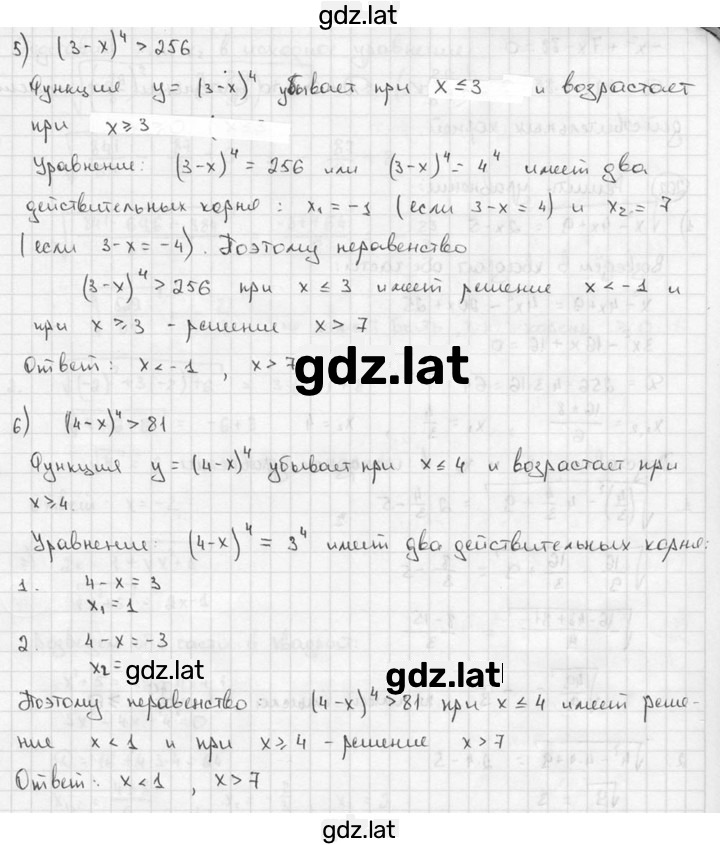 gdz.lat
5) (3-x)⁴ > 256
Функция y = (3-x)⁴ убывает при x ≤ 3 и возрастает
при x ≥ 3
Уравнение: (3-x)⁴ = 256 или (3-x)⁴ = 4⁴ имеет два
действительных корня : x₁ = -1 (если 3-x = 4) и x₂ = 7
(если 3-x = -4). Поэтому неравенство
(3-x)⁴ > 256 при x ≤ 3 имеет решение x < -1 и
при x ≥ 3 - решение x > 7
Ответ: x < -1 , x > 7
gdz.lat
6) (4-x)⁴ > 81
Функция y = (4-x)⁴ убывает при x ≤ 4 и возрастает при
x ≥ 4.
Уравнение: (4-x)⁴ = 3⁴ имеет два действительных корня:
1. 4-x = 3
x₁ = 1
2. 4-x = -3
x₂ =
gdz.lat
gdz.lat
Поэтому неравенство: (4-x)⁴ > 81 при x ≤ 4 имеет реше-
ние x < 1 и при x ≥ 4 - решение x > 7
Ответ: x < 1 , x > 7
gdz.lat